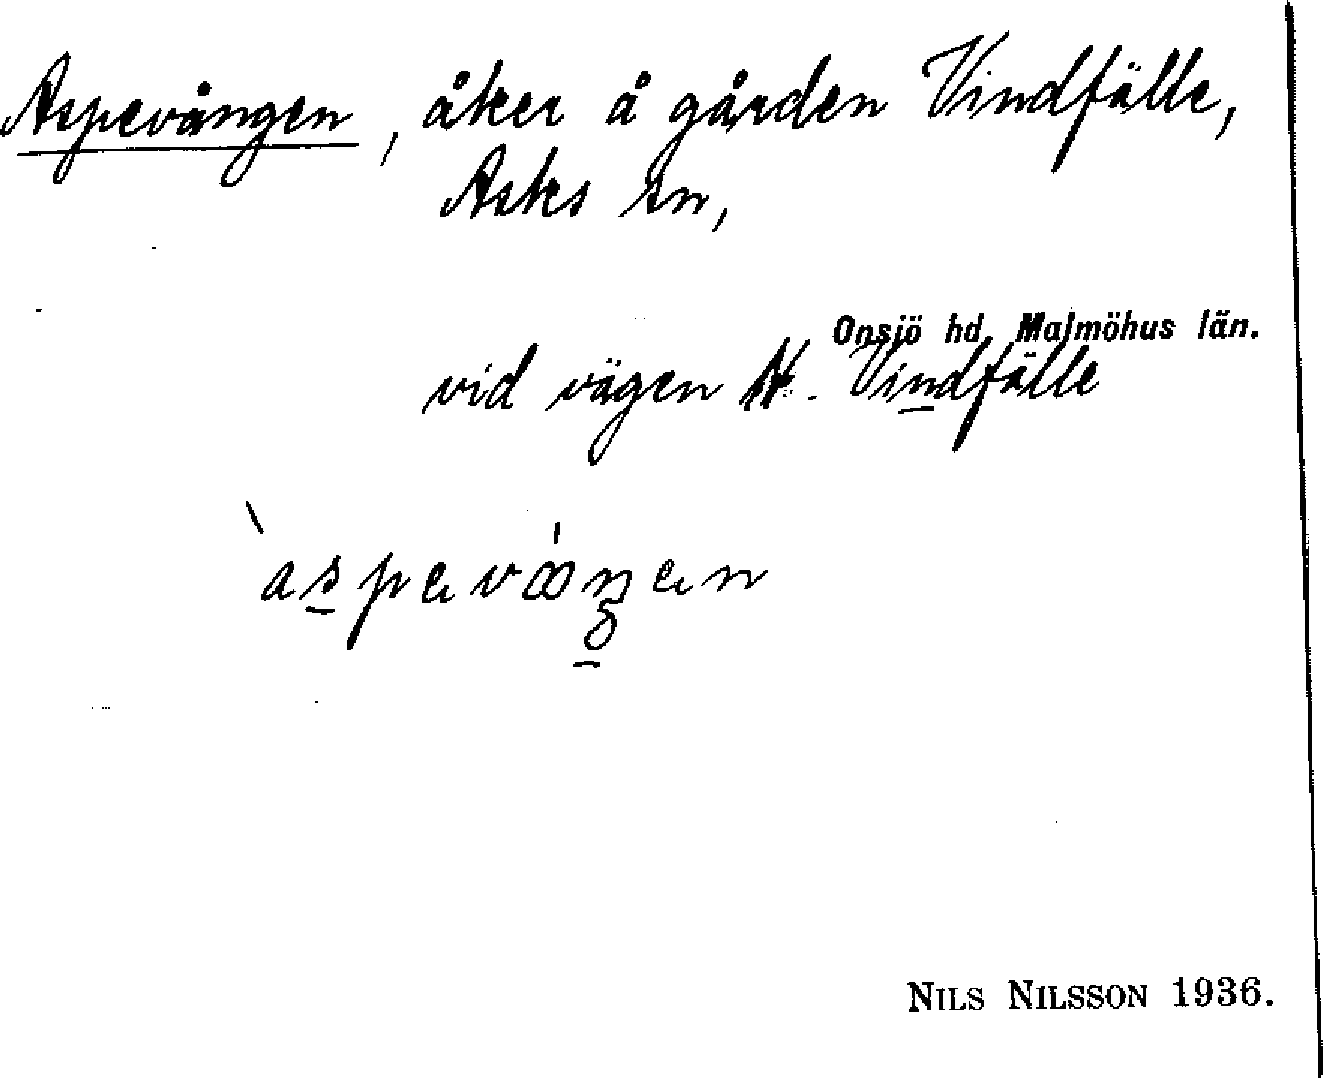 Aspevången, åker å gården Vindfälle,
Asks sn,
Onsjö hd, Malmöhus län.
vid vägen t. Vindfälle
NILS NILSSON 1936.